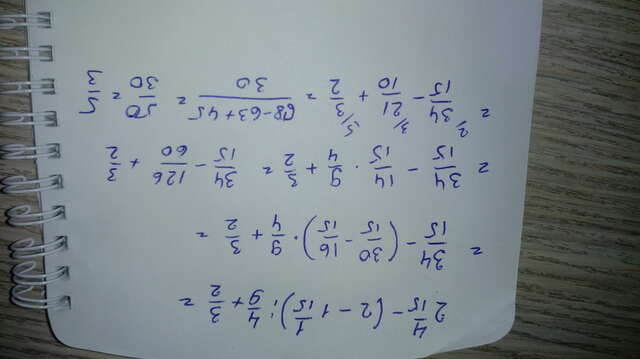 2 4/15 - (2 - 1 1/15) : 4/9 + 3/2 =
= 34/15 - (30/15 - 16/15) · 9/4 + 3/2 =
= 34/15 - 14/15 · 9/4 + 3/2 = 34/15 - 126/60 + 3/2
= 2/ 34/15 - 3/ 21/10 + 15/ 3/2 = 68-63+45/30 = 50/30 = 5/3